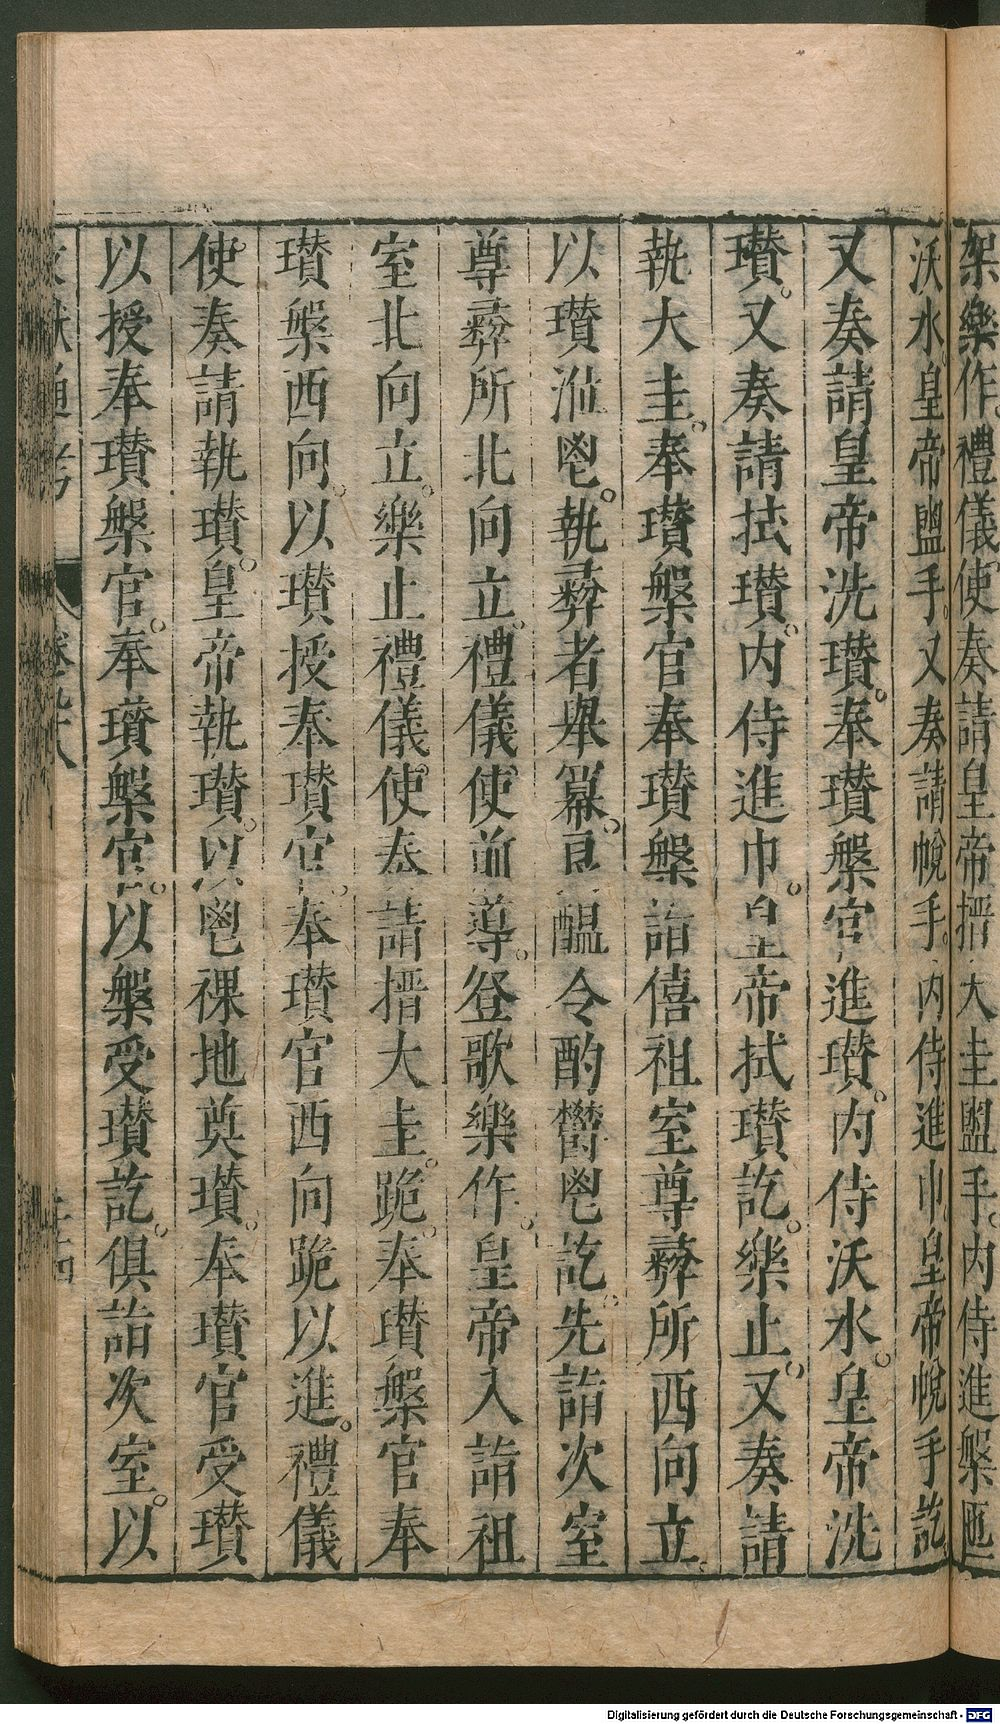 架樂作禮儀使奏請皇帝搢大圭盥手。内侍進槃匜
沃水。皇帝盥手。又奏請帨手。内侍進巾。皇帝帨手訖。
又奏請皇帝洗瓚。奉瓚槃官進瓚。内侍沃水。皇帝洗
瓚。又奏請拭瓚。内侍進巾。皇帝拭瓚訖。樂止。又奏請
執大圭。奉瓚槃官奉瓚槃詣僖祖室尊彞所西向立。
以瓚涖鬯。執彞者舉冪。良醞令酌鬱鬯訖。先詣次室
尊彞所北向立。禮儀使前導。登歌樂作。皇帝入詣祖
室北向立。樂止禮儀使奏請搢大圭。跪。奉瓚槃官奉
瓚槃西向。以瓚授奉瓚官。奉瓚官西向跪以進。禮儀
使奏請執瓚。皇帝執瓚。以鬯祼地奠瓚。奉瓚官受瓚
以授奉瓚槃官。奉瓚槃官。以槃受瓚訖。俱詣次室。以
文獻通考
卷